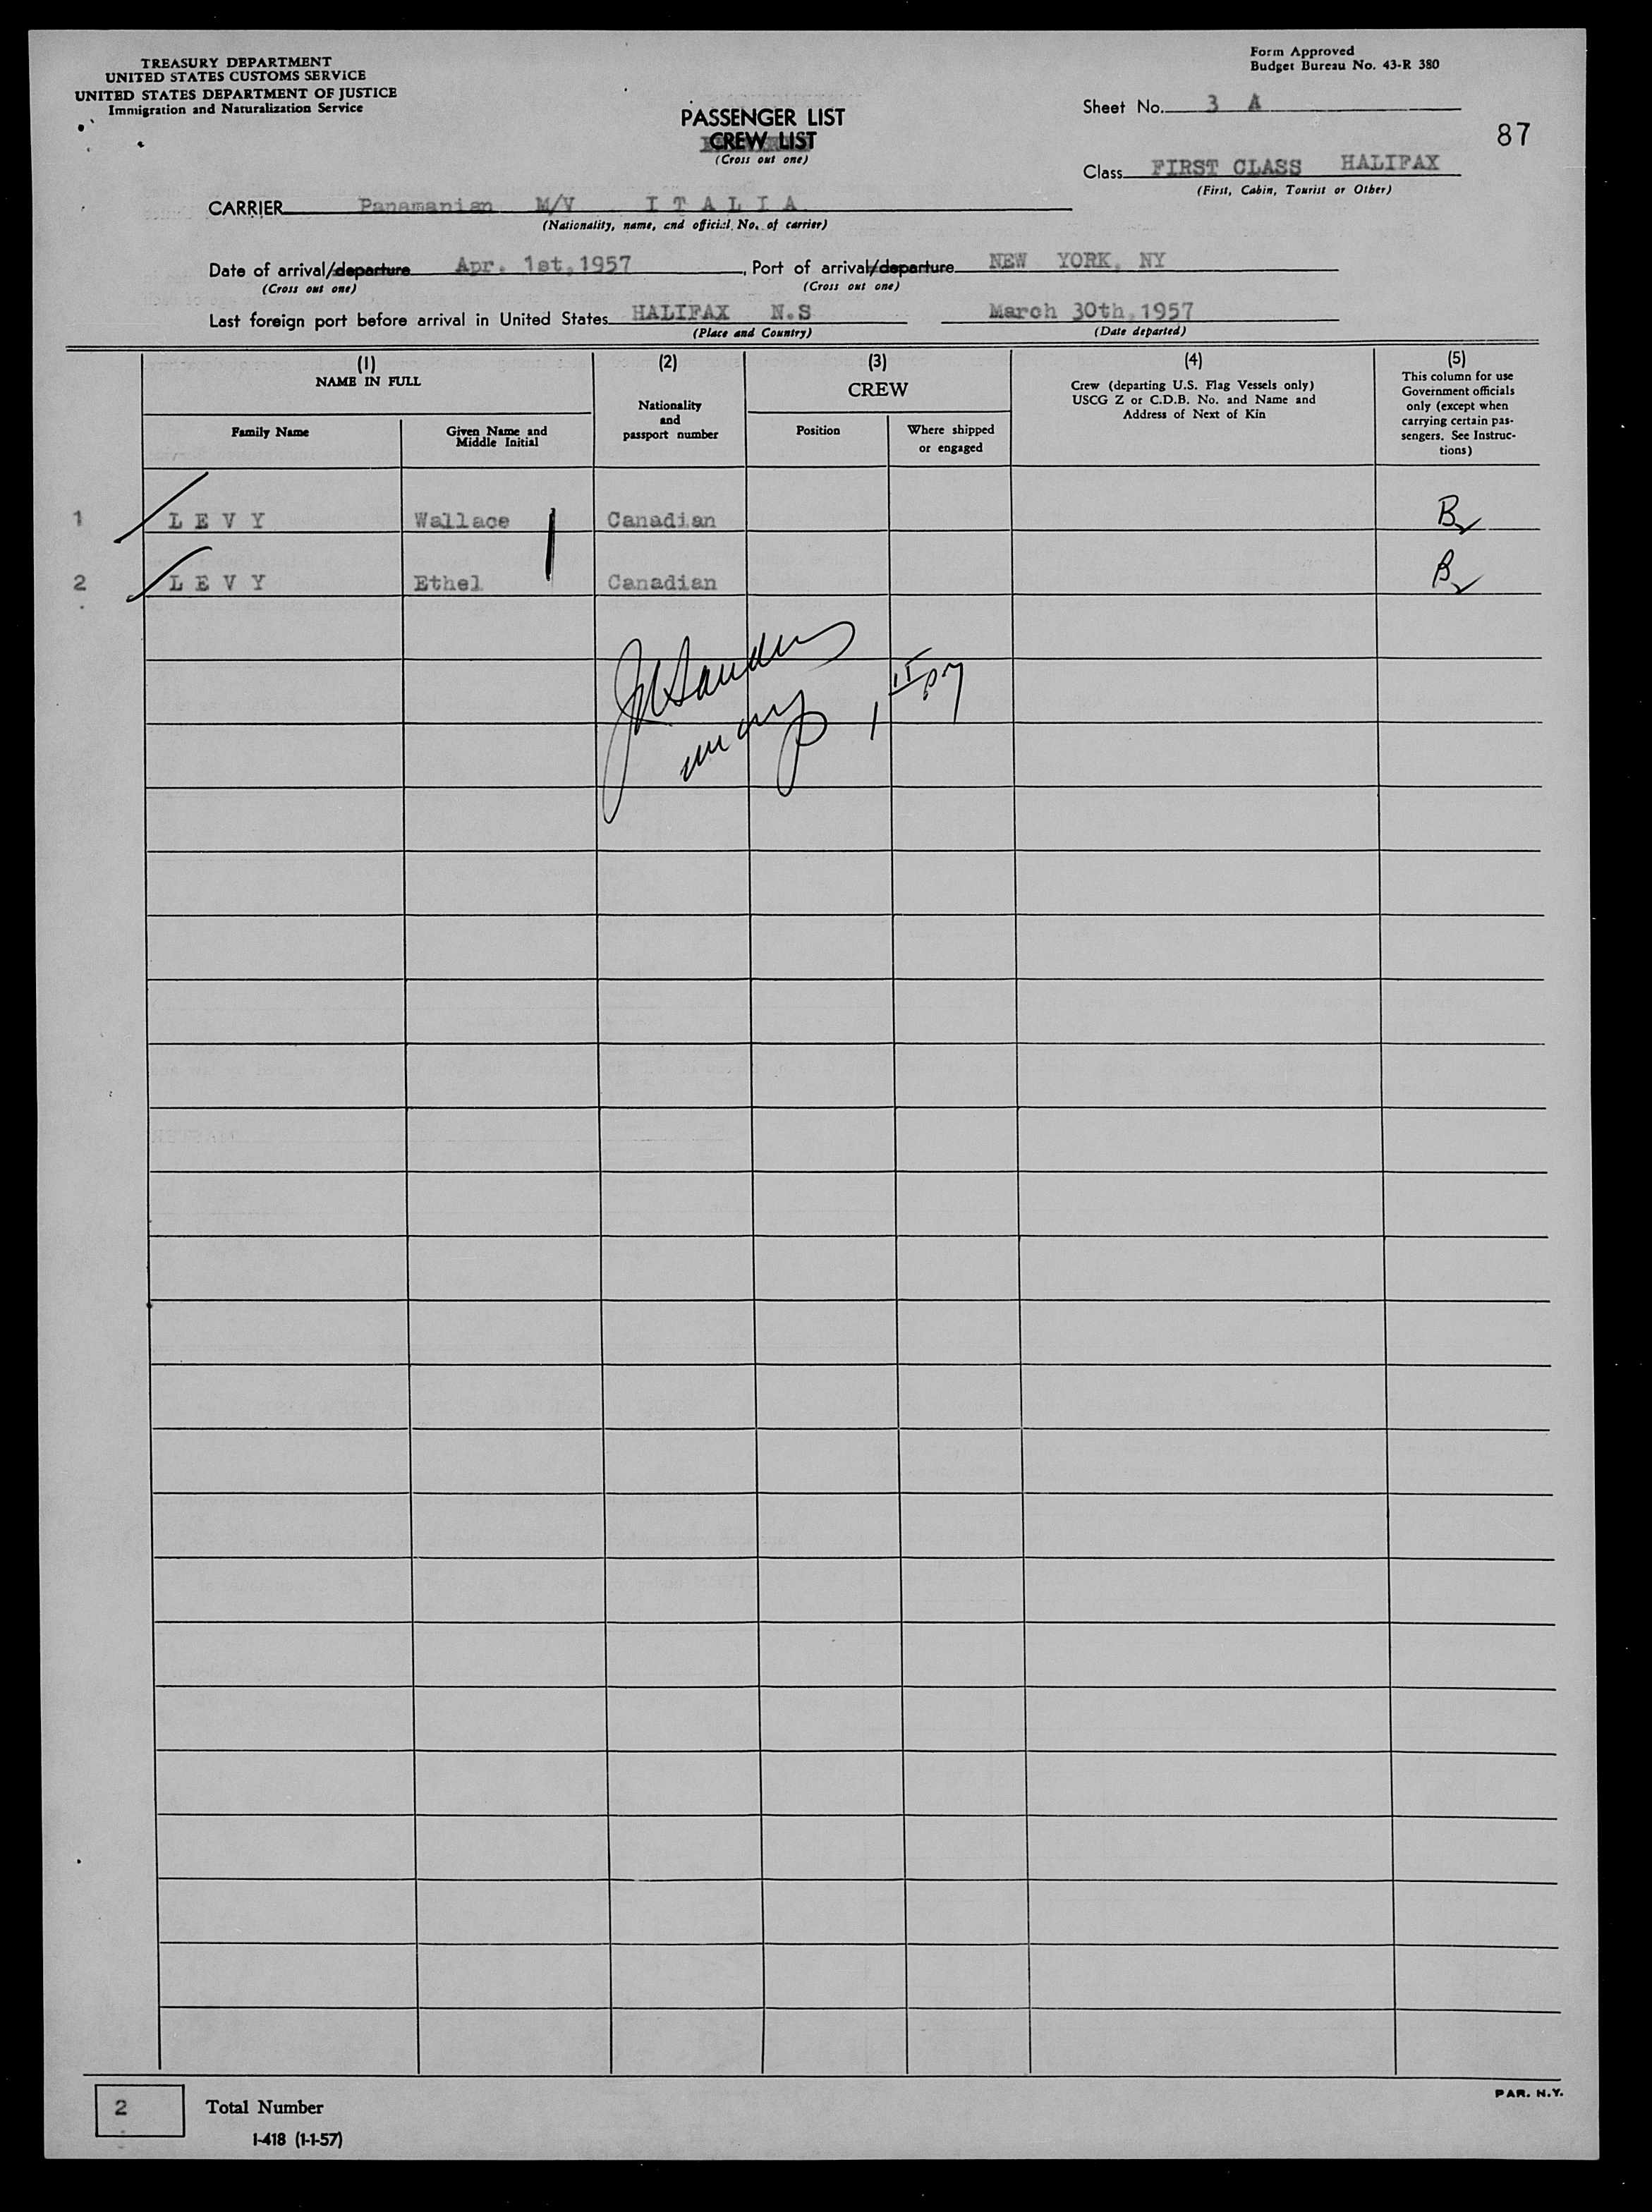 TREASURY DEPARTMENT
UNITED STATES CUSTOMS SERVICE
UNITED STATES DEPARTMENT OF JUSTICE
Immigration and Naturalization Service
Form Approved
Budget Bureau No. 43-R 380
PASSENGER LIST
CREW LIST
(Cross out one)
Sheet No. 3 A
87
Class FIRST CLASS HALIFAX
(First, Cabin, Tourist or Other)
CARRIER Panamanian M/V I T A L I A
(Nationality, name, and official No. of carrier)
Date of arrival/departure Apr. 1st, 1957, Port of arrival/departure NEW YORK, NY
(Cross out one) (Cross out one)
Last foreign port before arrival in United States HALIFAX N.S March 30th, 1957
(Place and Country) (Date departed)
(1)
NAME IN FULL
Family Name
Given Name and
Middle Initial
(2)
Nationality
and
passport number
(3)
CREW
Position
Where shipped
or engaged
(4)
Crew (departing U.S. Flag Vessels only)
USCG Z or C.D.B. No. and Name and
Address of Next of Kin
(5)
This column for use
Government officials
only (except when
carrying certain pas-
sengers. See Instruc-
tions)
1 L E V Y Wallace Canadian B
2 L E V Y Ethel Canadian B
2 Total Number
I-418 (1-1-57)
PAR. N.Y.